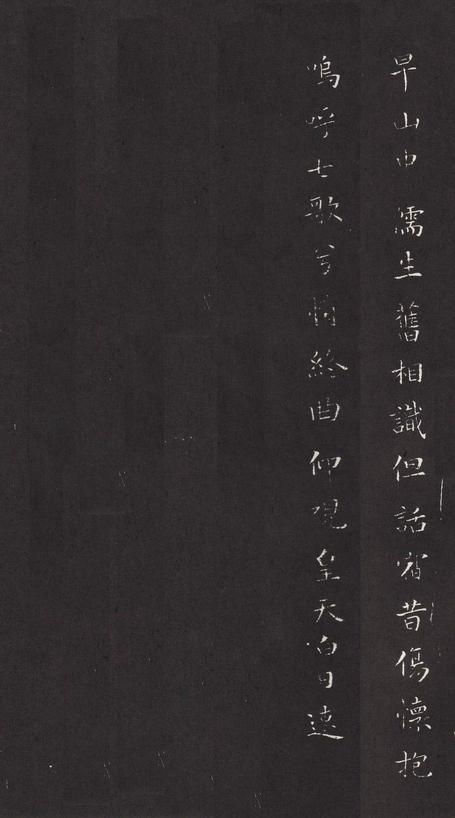 早山中儒生舊相識但話宿昔傷懷抱
嗚呼七歌兮悄終曲仰視皇天白日速